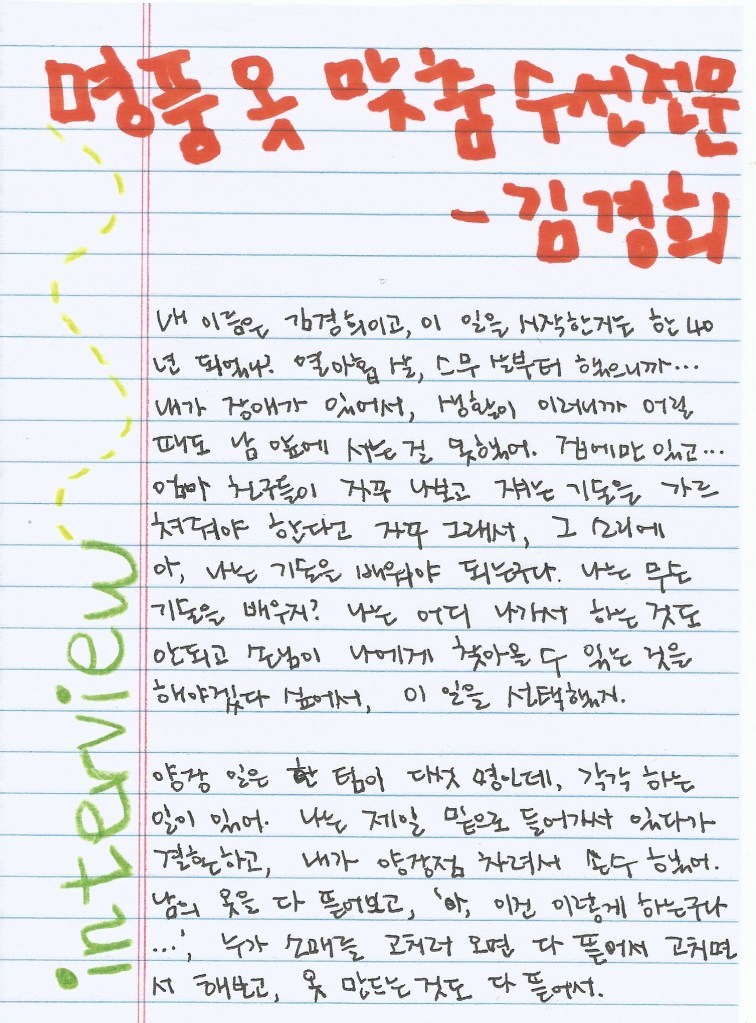 명품옷 맞춤수선전문
- 김경희
내 이름은 김경희이고, 이 일을 시작한지는 한 40
년 되었나? 열아홉 살, 스무 살부터 했으니까...
내가 장애가 있어서, 생활이 이러니까 어릴
때도 남 앞에 서는 걸 못했어. 집에만 있고...
엄마 친구들이 자꾸 나보고 쟤는 기술을 가르
쳐줘야 한다고 자꾸 그래서, 그 소리에
아, 나는 기술을 배워야 되는구나. 나는 무슨
기술을 배우지? 나는 어디 나가서 하는 것도
안되고 손님이 나에게 찾아올 수 있는 것을
해야겠다 싶어서, 이 일을 선택했지.
양장 일은 한 팀이 다섯 명인데, 각각 하는
일이 있어. 나는 제일 밑으로 들어가서 있다가
결혼하고, 내가 양장점 차려서 손수 했어.
남의 옷을 다 뜯어보고, '아, 이건 이렇게 하는구나
...', 누가 소매를 고치러 오면 다 뜯어서 고치면
서 해보고, 옷 만드는 것도 다 뜯어서.
interview